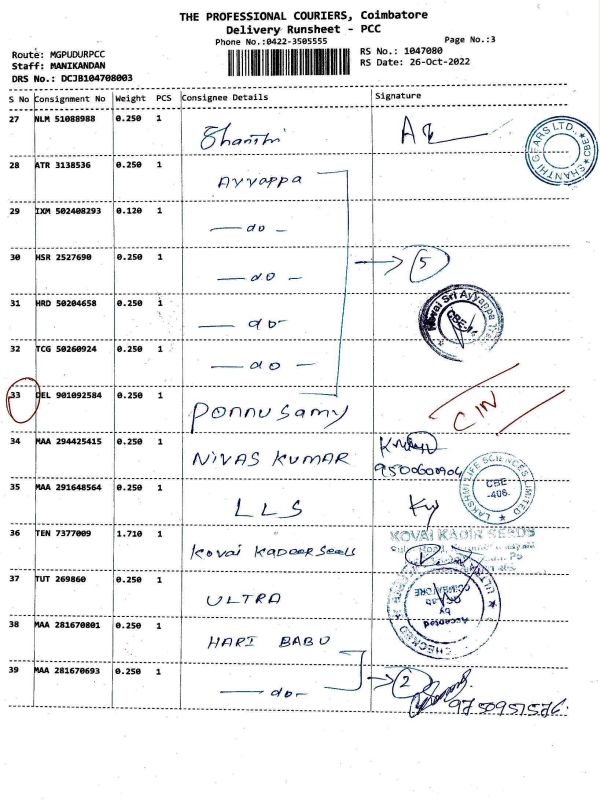 THE PROFESSIONAL COURIERS, Coimbatore
Delivery Runsheet - PCC
Phone No.:0422-3505555
Page No.:3
Route: MGPUDURPCC
RS No.: 1047080
Staff: MANIKANDAN
RS Date: 26-Oct-2022
DRS No.: DCJB104708003
S No Consignment No Weight PCS Consignee Details Signature
27 NLM 51088988 0.250 1 Shanthi
SHANTHI GEARS LTD., CBE
28 ATR 3138536 0.250 1 Ayyappa
29 IXM 502408293 0.120 1 — do —
30 HSR 2527690 0.250 1 — do — 5
31 HRD 50204658 0.250 1 — do —
Kovai Sri Ayyappa
32 TCG 50260924 0.250 1 — do —
33 DEL 901092584 0.250 1 Ponnusamy CIN
34 MAA 294425415 0.250 1 NIVAS KUMAR
9500600904
LAKSHMI LIFE SCIENCES LIMITED
CBE
-406.
35 MAA 291648564 0.250 1 LLS
36 TEN 7377009 1.710 1 Kovai Kadeer Seeds
KOVAI KADIR SEEDS
37 TUT 269860 0.250 1 ULTRA
ULTRA
COIMBATORE
Accepted
by
CHECKED
38 MAA 281670801 0.250 1 HARI BABU
39 MAA 281670693 0.250 1 — do — 2